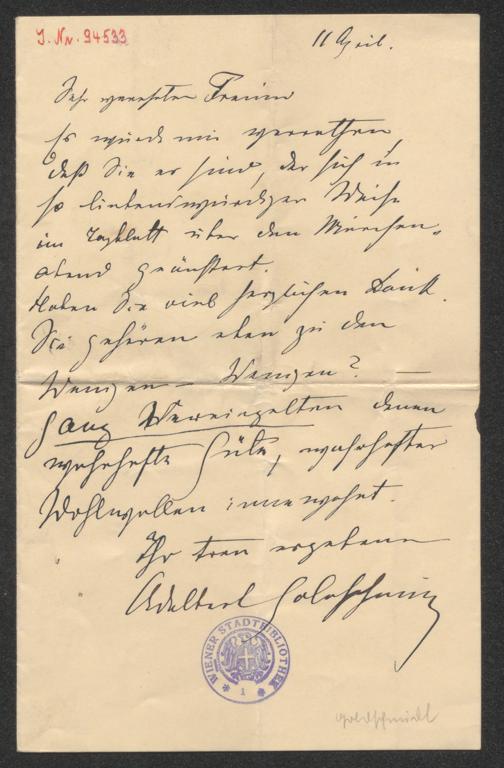 J. Nr. 94533
11 April.
Sehr verehrter Freund
Es wurde mir verrathen,
daß Sie es sind, der sich in
so liebenswürdiger Weise
im Tagblatt über den Märchen-
abend geäußert.
Haben Sie viel herzlichen Dank.
Sie gehören eben zu den
Wenigen – Wenigen? –
ganz Vereinzelten denen
wahrhafte Güte, wahrhaftes
Wohlwollen innewohnt.
Ihr treu ergebener
Adalbert Goldschmidt
WIENER STADTBIBLIOTHEK
1
Goldschmidt